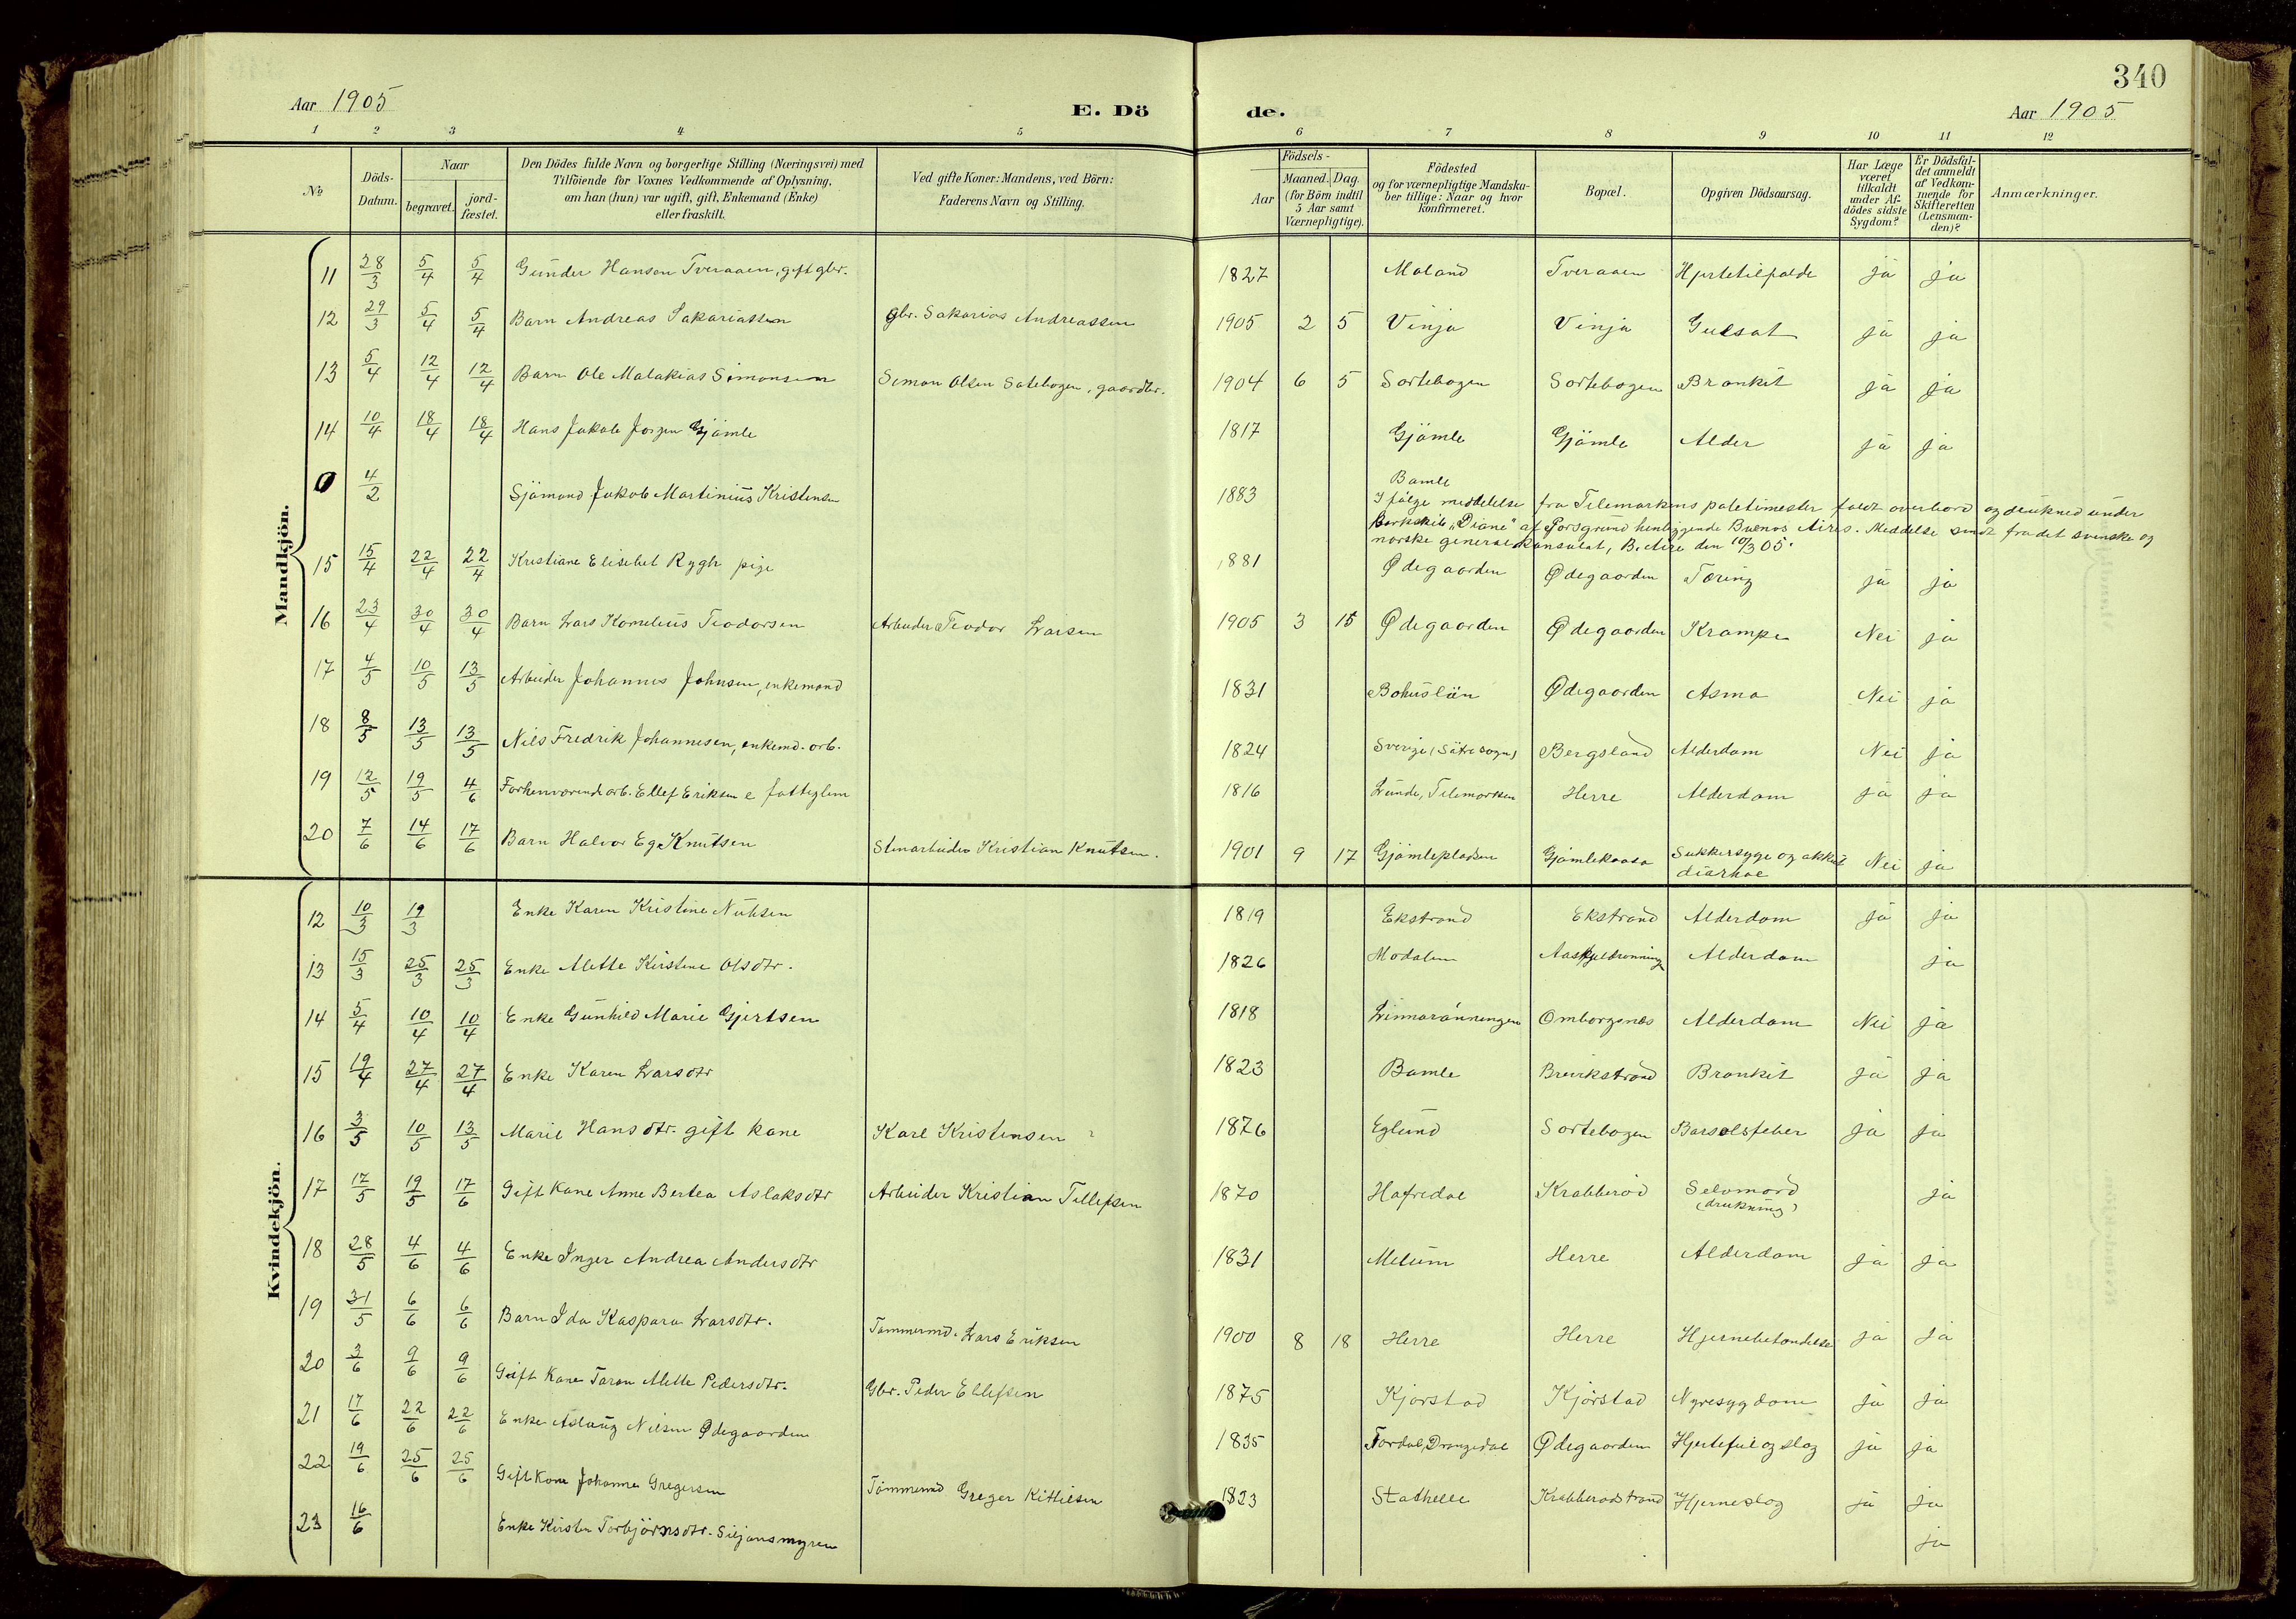 340
Aar 1905 E. Dö de. Aar 1905
1 2 3 4 5 6 7 8 9 10 11 12
No
Döds-
Datum.
Naar
begravet.
jord-
fæstet.
Den Dödes fulde Navn og borgerlige Stilling (Næringsvei) med
Tilföiende for Voxnes Vedkommende af Oplysning,
om han (hun) var ugift, gift, Enkemand (Enke)
eller fraskilt.
Ved gifte Koner: Mandens, ved Börn:
Faderens Navn og Stilling.
Födsels-
Aar
Maaned. Dag.
(for Börn indtil
5 Aar samt
Værnepligtige).
Födested
og for værnepligtige Mandska-
ber tillige: Naar og hvor
konfirmeret.
Bopæl.
Opgiven Dödsaarsag.
Har Læge
været
tilkaldt
under Af-
dödes sidste
Sygdom?
Er Dödsfal-
det anmeldt
af Vedkom-
mende for
Skifteretten
(Lensman-
den)?
Anmærkninger.
Mandkjön.
11 28/3 5/4 5/4 Gunder Hansen Tveraaen, gift gbr. 1827 Moland Tveraaen Hjertetilfælde ja ja
12 29/3 5/4 5/4 Barn Andreas Sakariassen gbr. Sakarias Andreassen 1905 2 5 Vinja Vinja Gulsot ja ja
13 5/4 12/4 12/4 Barn Ole Malakias Simonsen Simon Olsen Sotebogen, gaardbr. 1904 6 5 Sortebogen Sortebogen Bronkit ja ja
14 10/4 18/4 18/4 Hans Jakob Gjömle 1817 Gjömle Gjömle Alder ja ja
0 4/2 Sjömand Jakob Martinius Kristensen 1883 Bamle
I fölge meddelelse fra Telemarkens faldt overbord og druknede under
Barkskib "Diane" af Porsgrund henliggende Buenos Aires. Meddelse sendt fra det svenske og
norske generalkonsulat, B. Aire den 10/3 05.
15 15/4 22/4 22/4 Kristiane Elisebet Rygh pige 1881 Ødegaarden Ødegaarden Tæring ja ja
16 23/4 30/4 30/4 Barn Lars Kornelius Teodorsen Arbeider Teodor Larsen 1905 3 15 Ødegaarden Ødegaarden Krampe Nei ja
17 4/5 10/5 13/5 Arbeider Johannes Johnsen, enkemand 1831 Bohuslän Ødegaarden Asma Nei ja
18 8/5 13/5 13/5 Nils Fredrik Johannesen, enkemd. arb. 1824 Sverige (Sätresogn) Bergsland Alderdom Nei ja
19 12/5 19/5 4/6 Forhenværende arb. Ellef Eriksen e fattiglem 1816 Lunde, Telemarken Herre Alderdom ja ja
20 7/6 14/6 17/6 Barn Halvor Eg. Knutsen Stenarbeider Kristian Knutsen. 1901 9 17 Gjömlepladsen Gjömlekaasa Sukkersyge og akkut
diarhoe Nei ja
Kvindekjön.
12 10/3 19/3 Enke Karen Kristine 1819 Ekstrand Ekstrand Alderdom ja ja
13 15/3 25/3 25/3 Enke Mette Kirstine Olsdtr. 1826 Modalen Alderdom ja
14 5/4 10/4 10/4 Enke Gunhild Marie Gjertsen 1818 Omborgsnes Alderdom Nei ja
15 19/4 27/4 27/4 Enke Karen Larsdtr 1823 Bamle Breivkstrand Bronkit ja ja
16 3/5 10/5 13/5 Marie Hansdtr. gift kone Karl Kristensen 1876 Eglund Sortebogen Barselsfeber ja ja
17 17/5 19/5 17/6 Gift Kone Anne Bertea Aslaksdtr Arbeider Kristian Tellefsen 1870 Hafredal Krabberöd Selvmord
(drukning) ja
18 28/5 4/6 4/6 Enke Inger Andrea Andersdtr 1831 Melum Herre Alderdom ja ja
19 31/5 6/6 6/6 Barn Ida Kaspara Larsdtr. Tömmermd. Lars Eriksen 1900 8 18 Herre Herre Hjernebetændelse ja ja
20 3/6 9/6 9/6 Gift Kone Taran Mette Pedersdtr. Gbr. Peder Ellefsen 1875 Kjörstad Kjörstad Nyresygdom ja ja
21 17/6 22/6 22/6 Enke Aslaug Nilsen Ødegaarden 1835 Tordal, Drangedal Ødegaarden Hjertefeil og slag ja ja
22 19/6 25/6 25/6 Gift Kone Johanne Gregersen Tömmermd Greger Kittilsen 1823 Stathelle Krabberödstrand Hjerneslag ja ja
23 16/6 Enke Kirsten Torbjörnsdtr. Siljansmyren ja